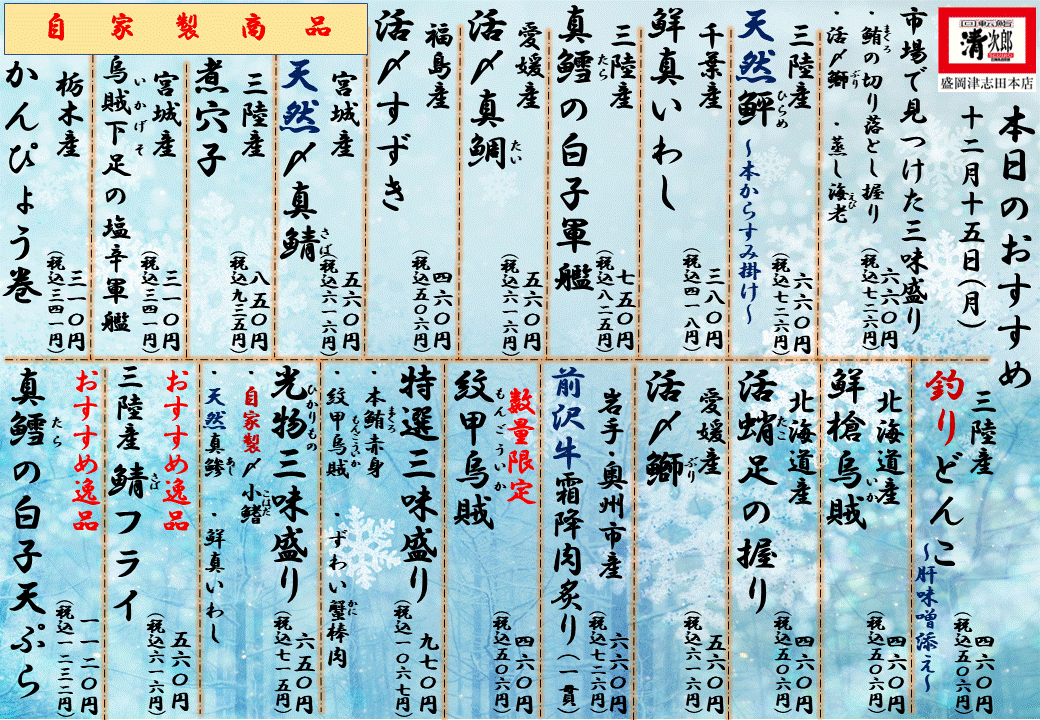 回転鮨
清次郎
盛岡津志田本店
本日のおすすめ
十二月十五日(月)
市場で見つけた三味盛り
・鮪の切り落とし握り
まぐろ
・活〆鰤 ・蒸し海老
ぶり
えび
六六〇円
(税込七二六円)
三陸産
天然鮃
ひらめ
~本からすみ掛け~
六六〇円
(税込七二六円)
千葉産
鮮真いわし
三八〇円
(税込四一八円)
三陸産
真鱈の白子軍艦
たら
七五〇円
(税込八二五円)
愛媛産
活〆真鯛
たい
五六〇円
(税込六一六円)
福島産
活〆すずき
四六〇円
(税込五〇六円)
自家製商品
宮城産
天然〆真鯖
さば
五六〇円
(税込六一六円)
三陸産
煮穴子
八五〇円
(税込九三五円)
宮城産
烏賊下足の塩辛軍艦
いかげそ
三一〇円
(税込三四一円)
栃木産
かんぴょう巻
三一〇円
(税込三四一円)
三陸産
釣りどんこ
~肝味噌添え~
四六〇円
(税込五〇六円)
北海道産
鮮槍烏賊
いか
四六〇円
(税込五〇六円)
北海道産
活蛸足の握り
たこ
四六〇円
(税込五〇六円)
愛媛産
活〆鰤
ぶり
五六〇円
(税込六一六円)
岩手・奥州市産
前沢牛霜降肉炙り(一貫)
六六〇円
(税込七二六円)
数量限定
紋甲烏賊
もんごういか
四六〇円
(税込五〇六円)
特選三味盛り
・本鮪赤身
まぐろ
・紋甲烏賊 ・ずわい蟹棒肉
もんごういか
かに
九七〇円
(税込一〇六七円)
光物三味盛り
ひかりもの
・自家製〆小鰭
こはだ
・天然真鯵 ・鮮真いわし
あじ
六五〇円
(税込七一五円)
おすすめ逸品
三陸産 鯖フライ
さば
五六〇円
(税込六一六円)
おすすめ逸品
真鱈の白子天ぷら
たら
一一二〇円
(税込一二三二円)